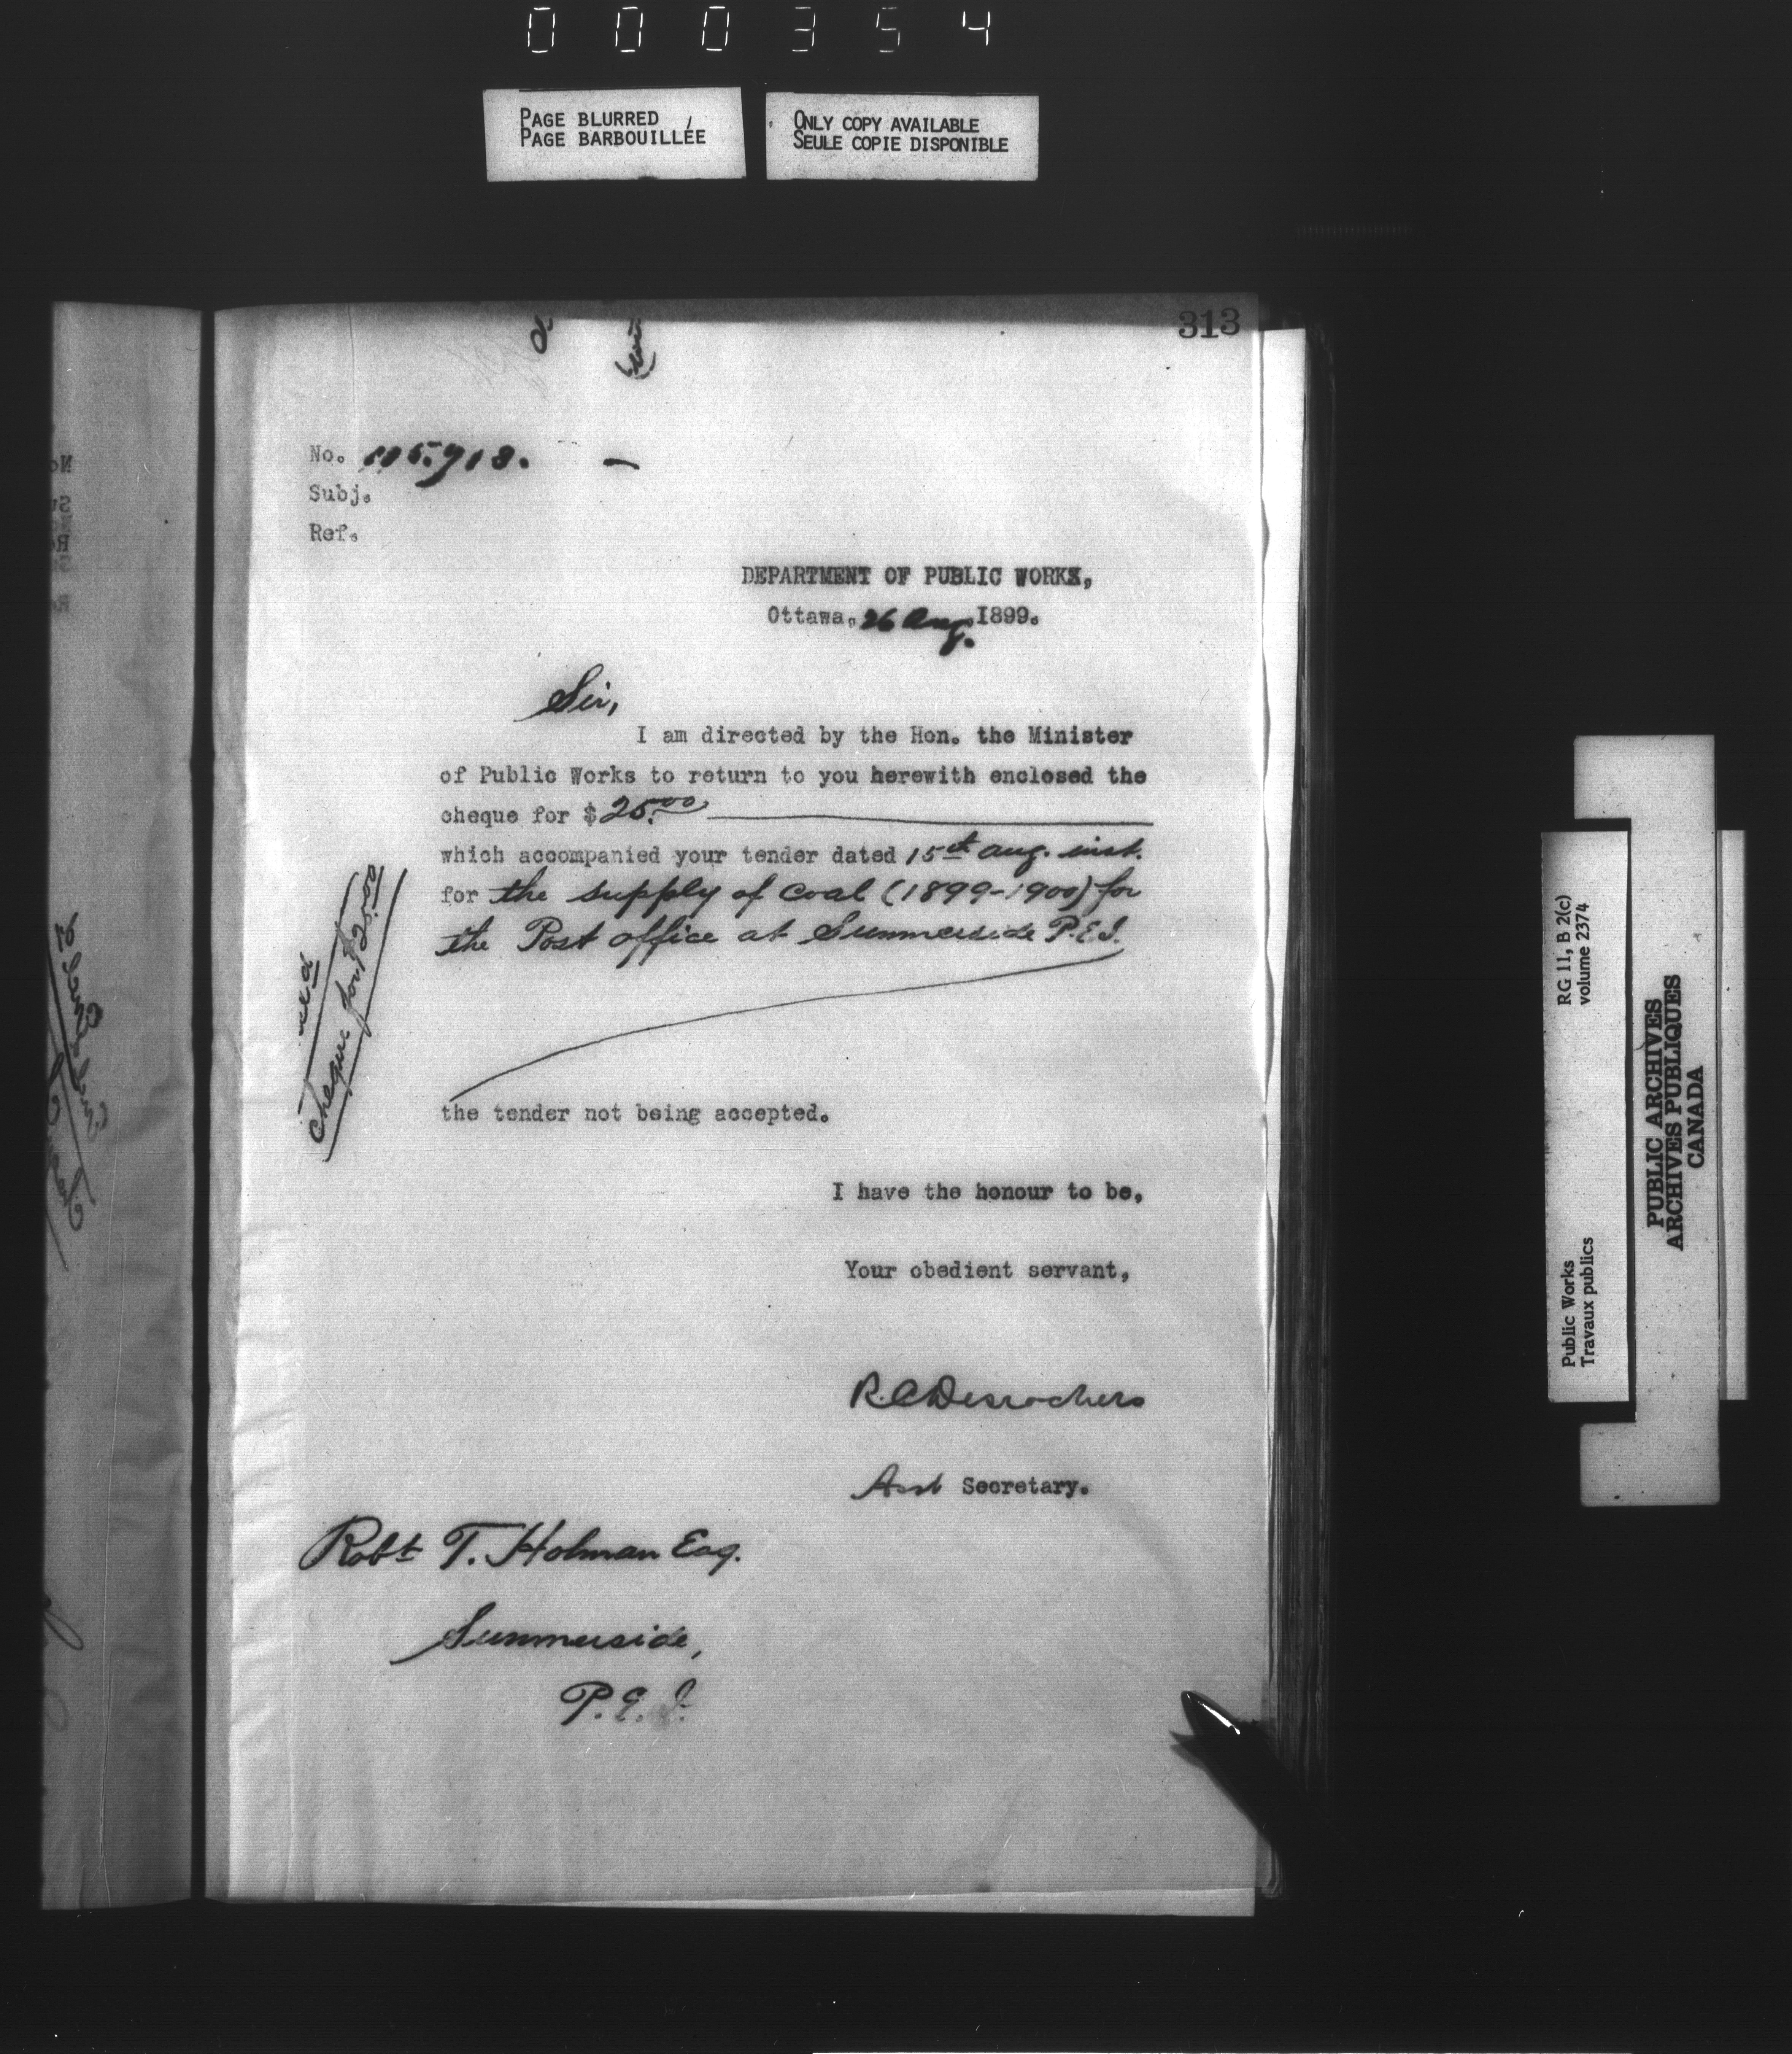 000354
PAGE BLURRED
PAGE BARBOUILLÉE
ONLY COPY AVAILABLE
SEULE COPIE DISPONIBLE
313
No. 105.918.
Subj.
Ref.
DEPARTMENT OF PUBLIC WORKS,
Ottawa, 26 Aug. 1899.
Sir,
I am directed by the Hon. the Minister
of Public Works to return to you herewith enclosed the
cheque for $ 25.00
which accompanied your tender dated 15th aug. inst.
for the supply of coal (1899-1900) for
the Post office at Summerside P.E.I.
cheque for $25.00
the tender not being accepted.
I have the honour to be,
Your obedient servant,
R.C Desrochers
Asst Secretary.
Robt T. Holman Esq.
Summerside,
P.E.I.
RG 11, B 2(c)
volume 2374
Public Works
Travaux publics
PUBLIC ARCHIVES
ARCHIVES PUBLIQUES
CANADA